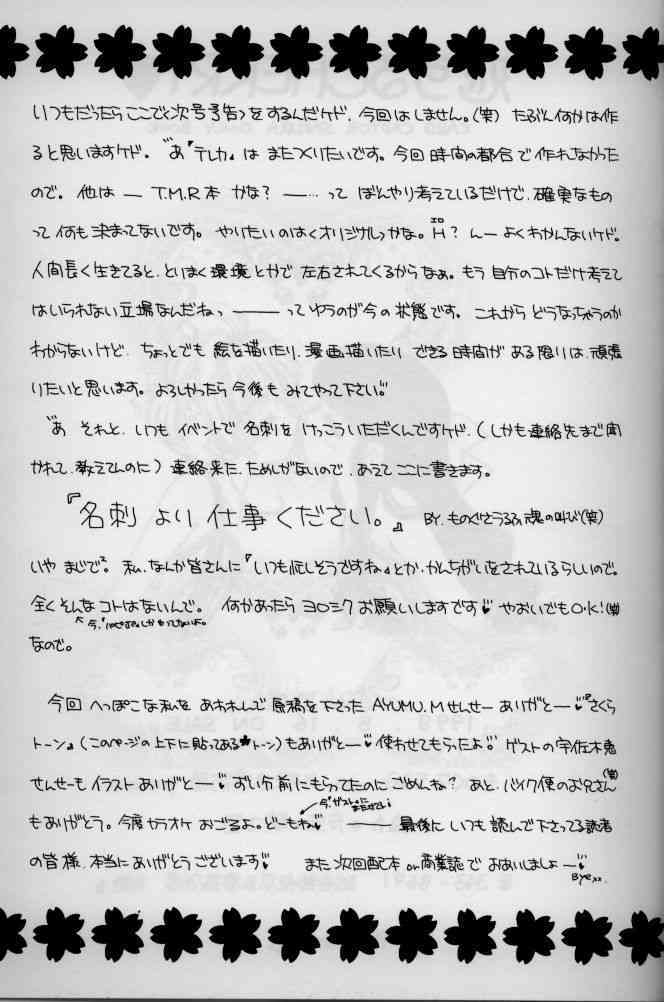 いつもだったらここで〈次号予告〉をするんだケド、今回はしません。(笑) たぶん何かは作
ると思いますケド。"あ『テレカ』は またつくりたいです。今回 時間の都合で作れなかった
ので。他は ― T.M.R本 かな? ―…って ぼんやり考えているだけで、確実なもの
って何も決まってないです。やりたいのは〈オリジナル〉かな。H? んーよくわかんないケド。
エロ
人間長く生きてると、とりまく環境とかで左右されてくるからなぁ。もう自分のコトだけ考えて
はいられない立場なんだねっ ―― っていうのが今の状態です。これからどうなっちゃうのか
わからないけど、ちょっとでも絵を描いたり、漫画描いたり できる時間がある限りは、頑張
りたいと思います。よろしかったら今後もみてやって下さい。
"あ それと、いつもイベントで名刺をけっこういただくんですケド、(しかも連絡先まで聞
かれて、教えてんのに) 連絡来た、ためしがないので、あえてここに書きます。
『名刺より仕事ください。』 BY. 魂の叫び(笑)
いやまじで。私、なんか皆さんに『いつも忙しそうですね』とか、かんちがいをされているらしいので。
全くそんなコトはないんで。何かあったらヨロシクお願いしますです♥ やおいでもO・K!(笑)
なので。
今回へっぽこな私をあわれんで原稿を下さったAYUMU.Mせんせーありがとー♥『さくら
トーン』(このページの上下に貼ってあるトーン)もありがとー♥使わせてもらったよ! ゲストの宇佐木兎
せんせーもイラストありがとー♥ ずい分前にもらってたのにごめんね? あと、バイク便のお兄さん(笑)
もありがとう。今度カラオケおごるよ。どーもね♥ ―― 最後にいつも読んで下さってる読者
の皆様、本当にありがとうございます♥ また次回配本or商業誌でおあいしましょー♥
Bye xx.